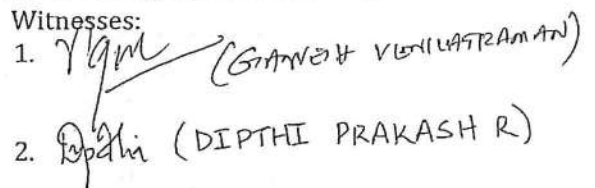 Witnesses:
1. (GANESH VENKATRAMAN)
2. Dipthi (DIPTHI PRAKASH R)